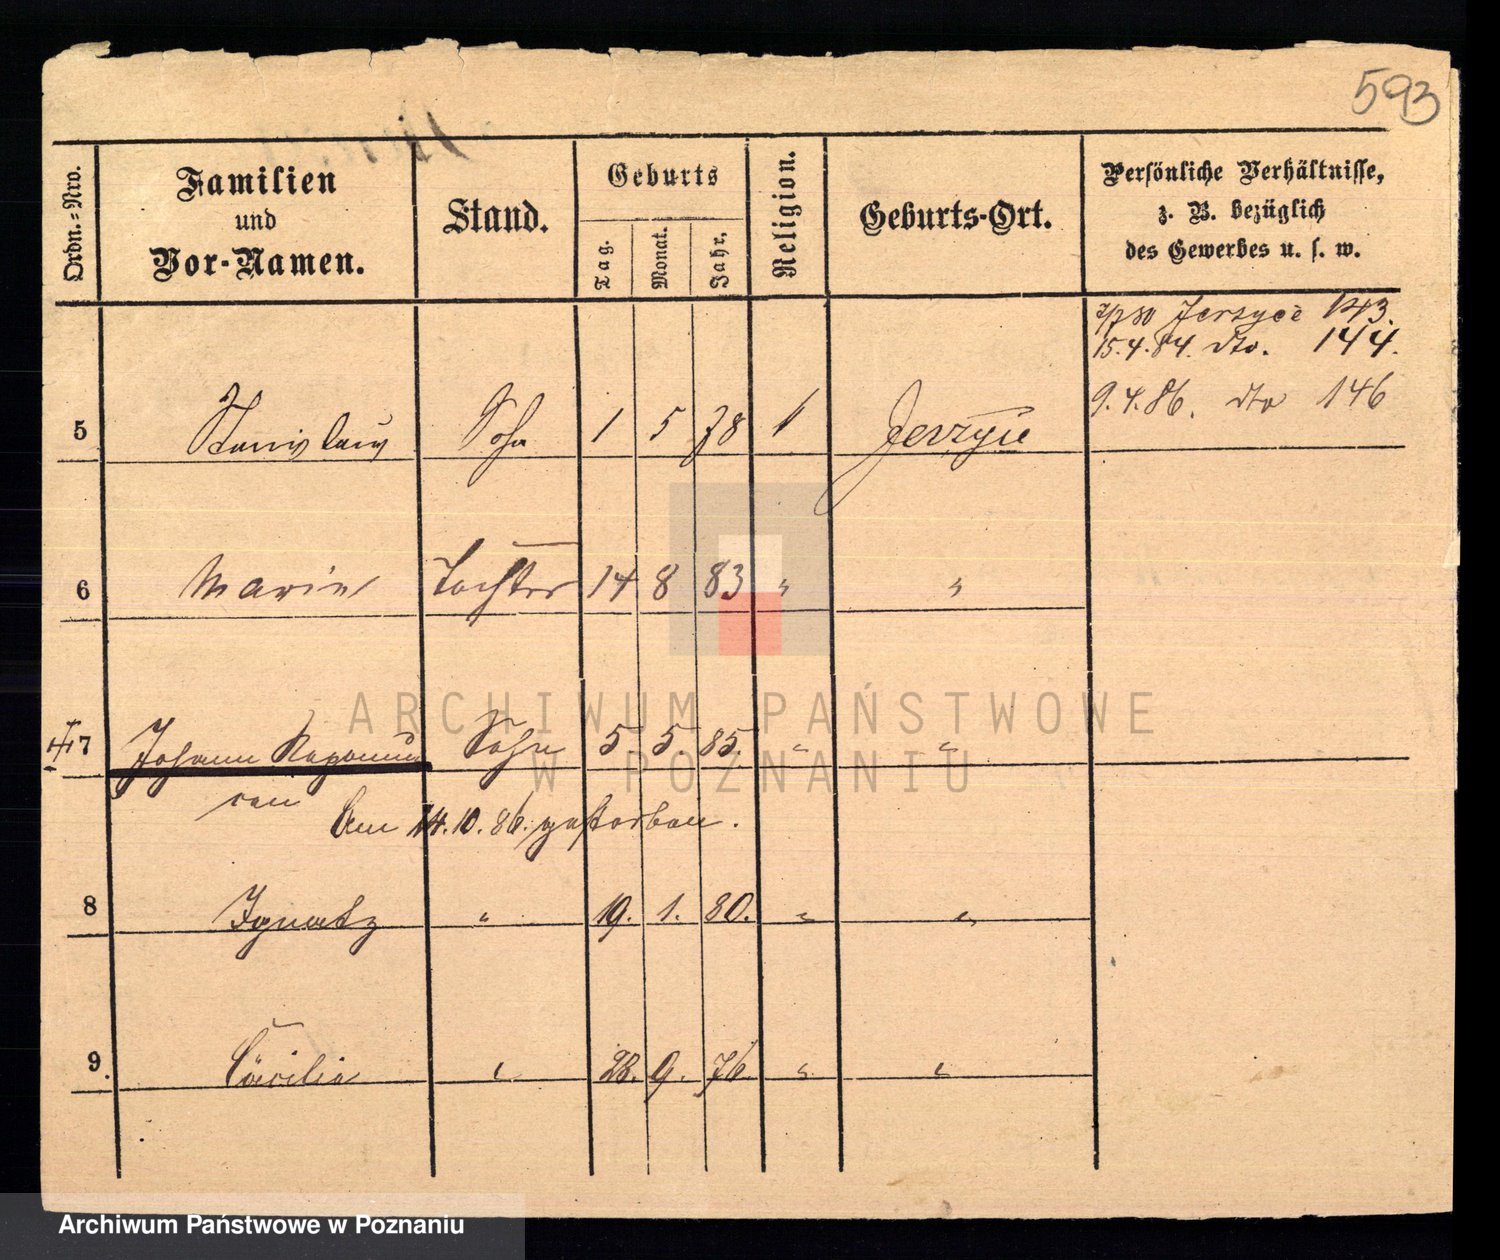 593
Ordn.-Nro.
Familien
und
Vor-Namen.
Stand.
Geburts
Tag.
Monat.
Jahr.
Religion.
Geburts-Ort.
Persönliche Verhältnisse,
z. B. bezüglich
des Gewerbes u. s. w.
80 Jerzyce 143.
15.4.84. dto. 144.
9.4.86. dto 146
5 Stanislaus Sohn 1 5 78 Jerzyce
6 Marie Tochter 14 8 83 " "
7 Johann Nepomu Sohn 5. 5. 85. " "
cen
Am 14.10.86. gestorben.
8 Ignatz " 19. 1. 80. " "
9. Cäcilia " 28. 9. 76 " "
ARCHIWUM PAŃSTWOWE
W POZNANIU
Archiwum Państwowe w Poznaniu